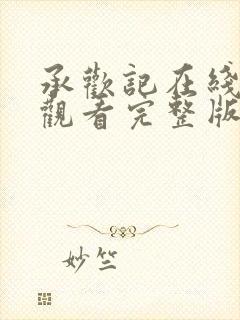 承歡記在綫
觀看完整版
妙竺